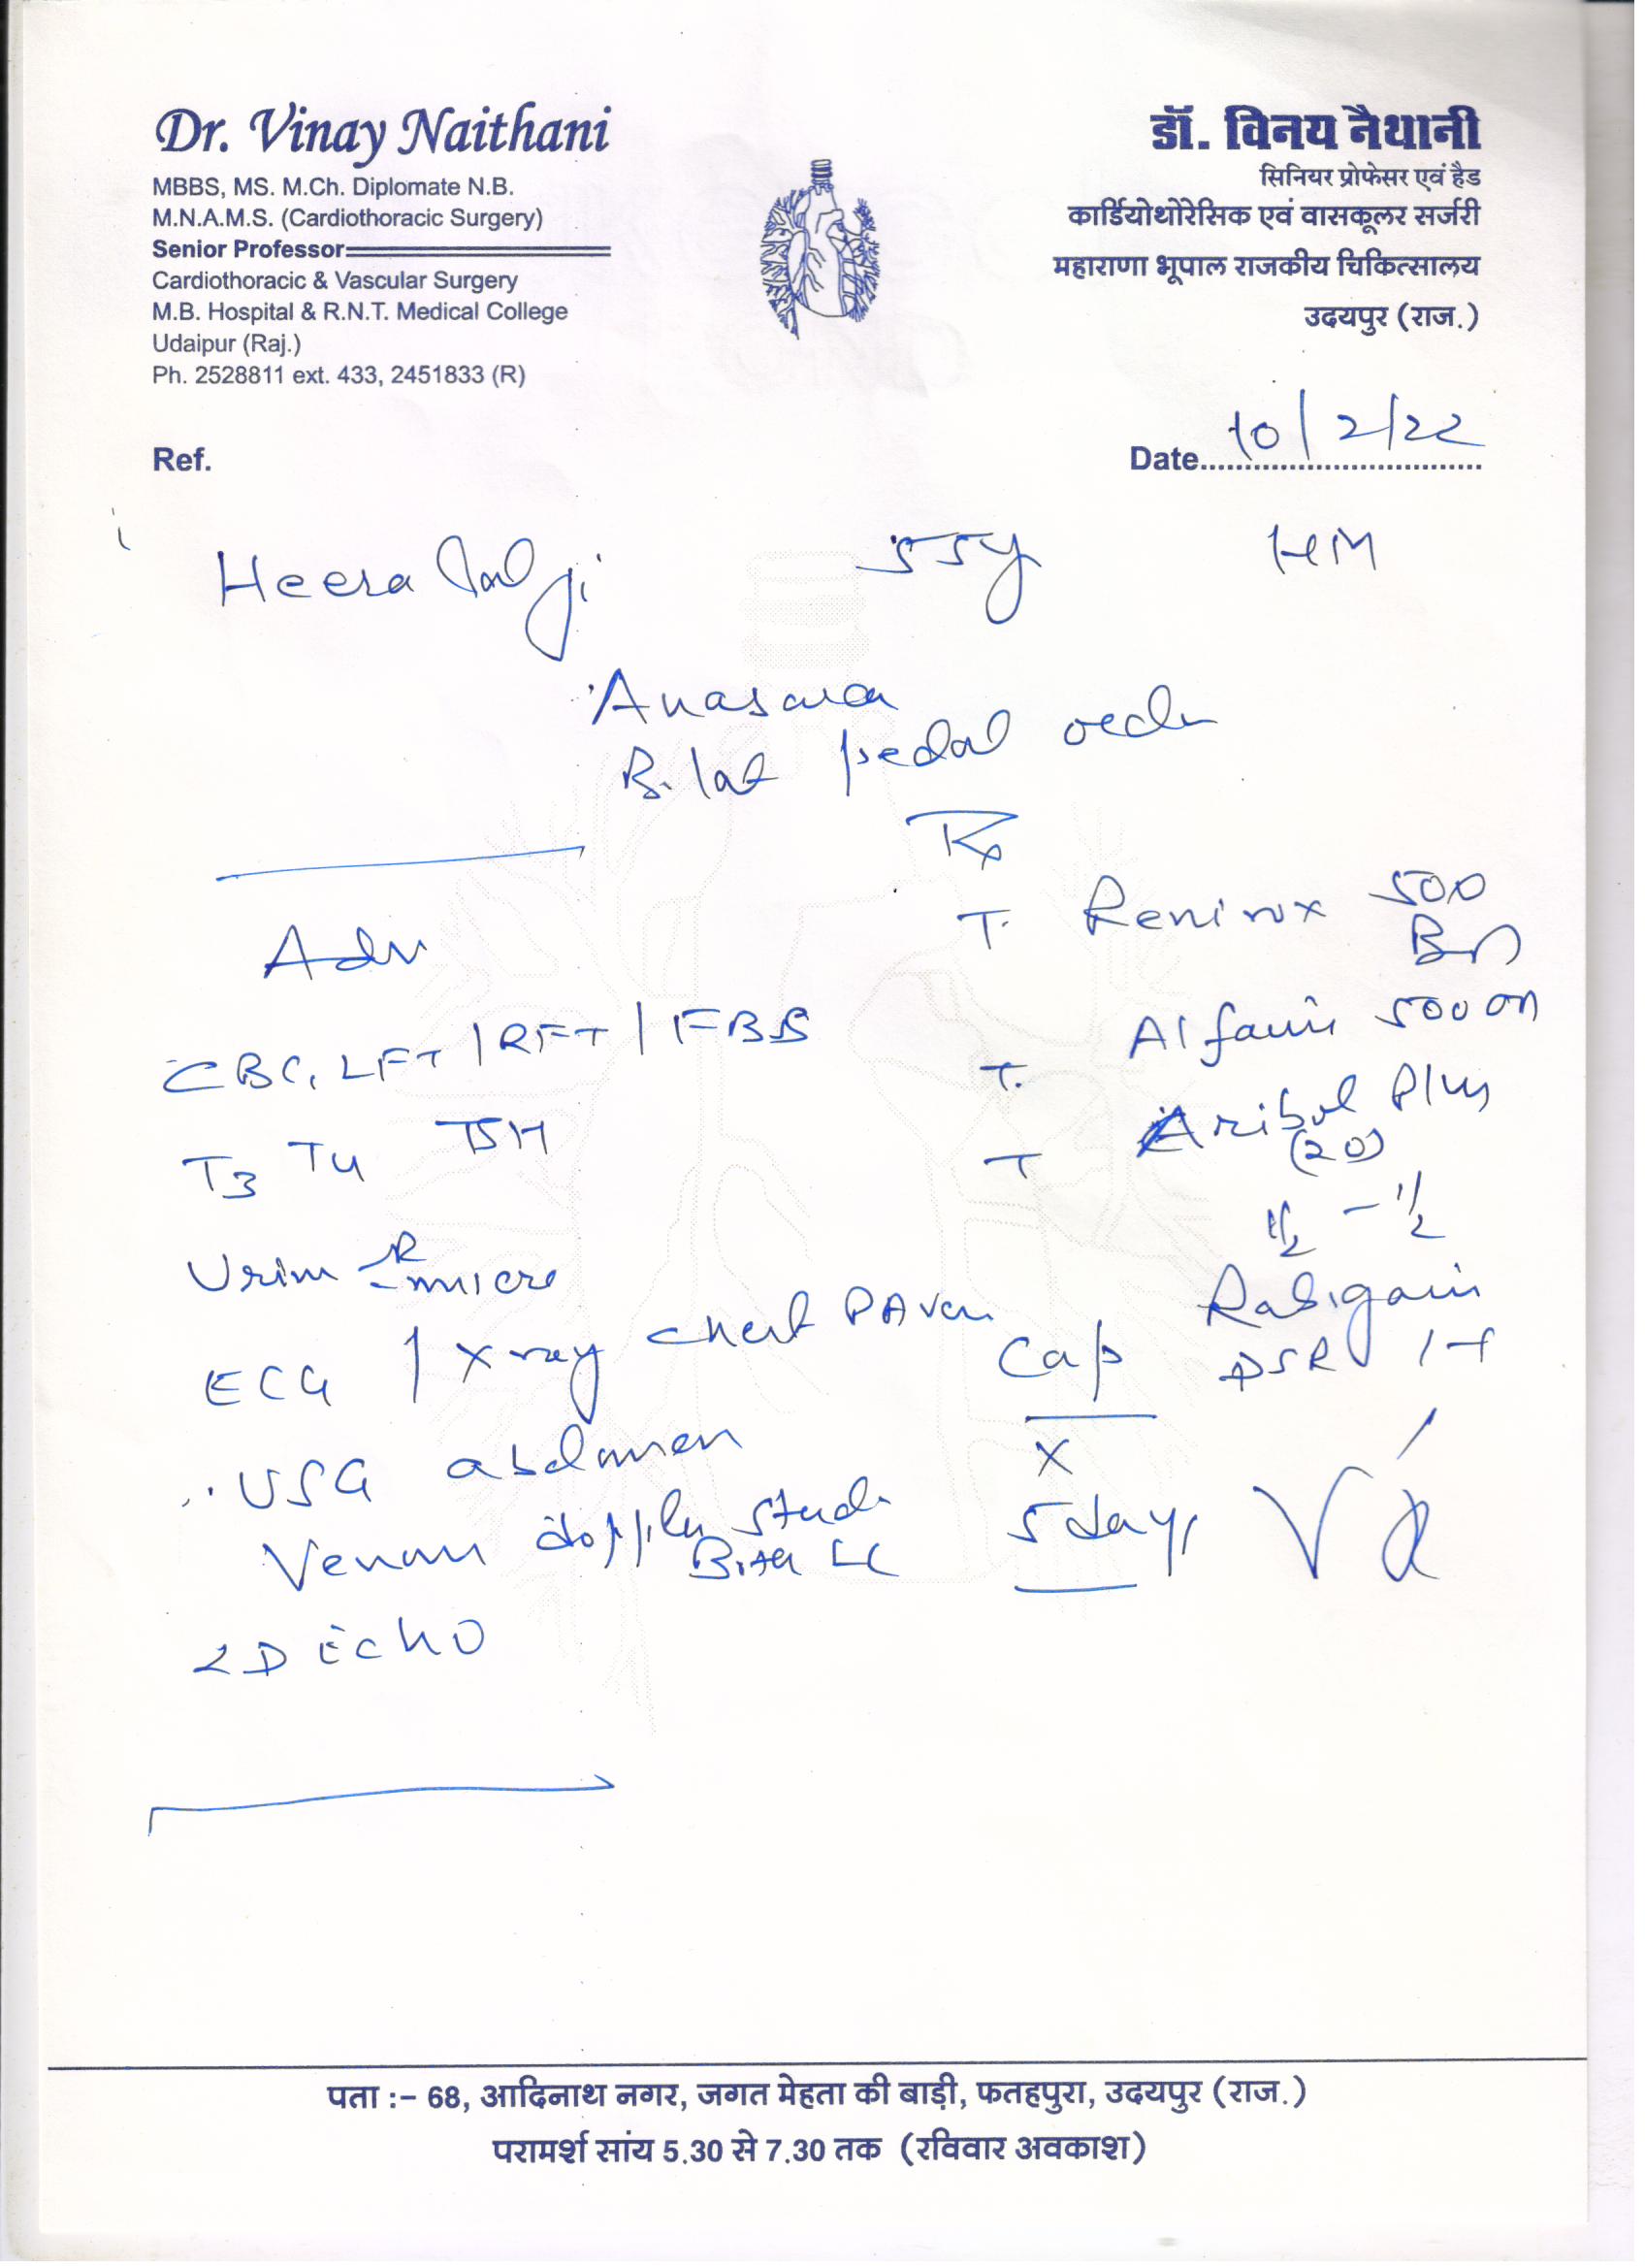 Dr. Vinay Naithani
MBBS, MS. M.Ch. Diplomate N.B.
M.N.A.M.S. (Cardiothoracic Surgery)
Senior Professor
Cardiothoracic & Vascular Surgery
M.B. Hospital & R.N.T. Medical College
Udaipur (Raj.)
Ph. 2528811 ext. 433, 2451833 (R)
डॉ. विनय नैथानी
सिनियर प्रोफेसर एवं हैड
कार्डियोथोरेसिक एवं वासकूलर सर्जरी
महाराणा भूपाल राजकीय चिकित्सालय
उदयपुर (राज.)
Ref.
Date 10/2/22
Heera lal ji 55y HM
Anasarca
Bilat pedal
Rx
Adv
CBC, LFT / RFT / FBS
T3 T4 TSH
Urine R micro
ECG / X ray chest PA
USG abdomen
Venous doppler study
2D Echo
T. 500
T. 500 OD
T Plus
(20)
1/2 - 1/2
Cap
DSR 1-1
x
5 days
पता :– 68, आदिनाथ नगर, जगत मेहता की बाड़ी, फतहपुरा, उदयपुर (राज.)
परामर्श सांय 5.30 से 7.30 तक (रविवार अवकाश)